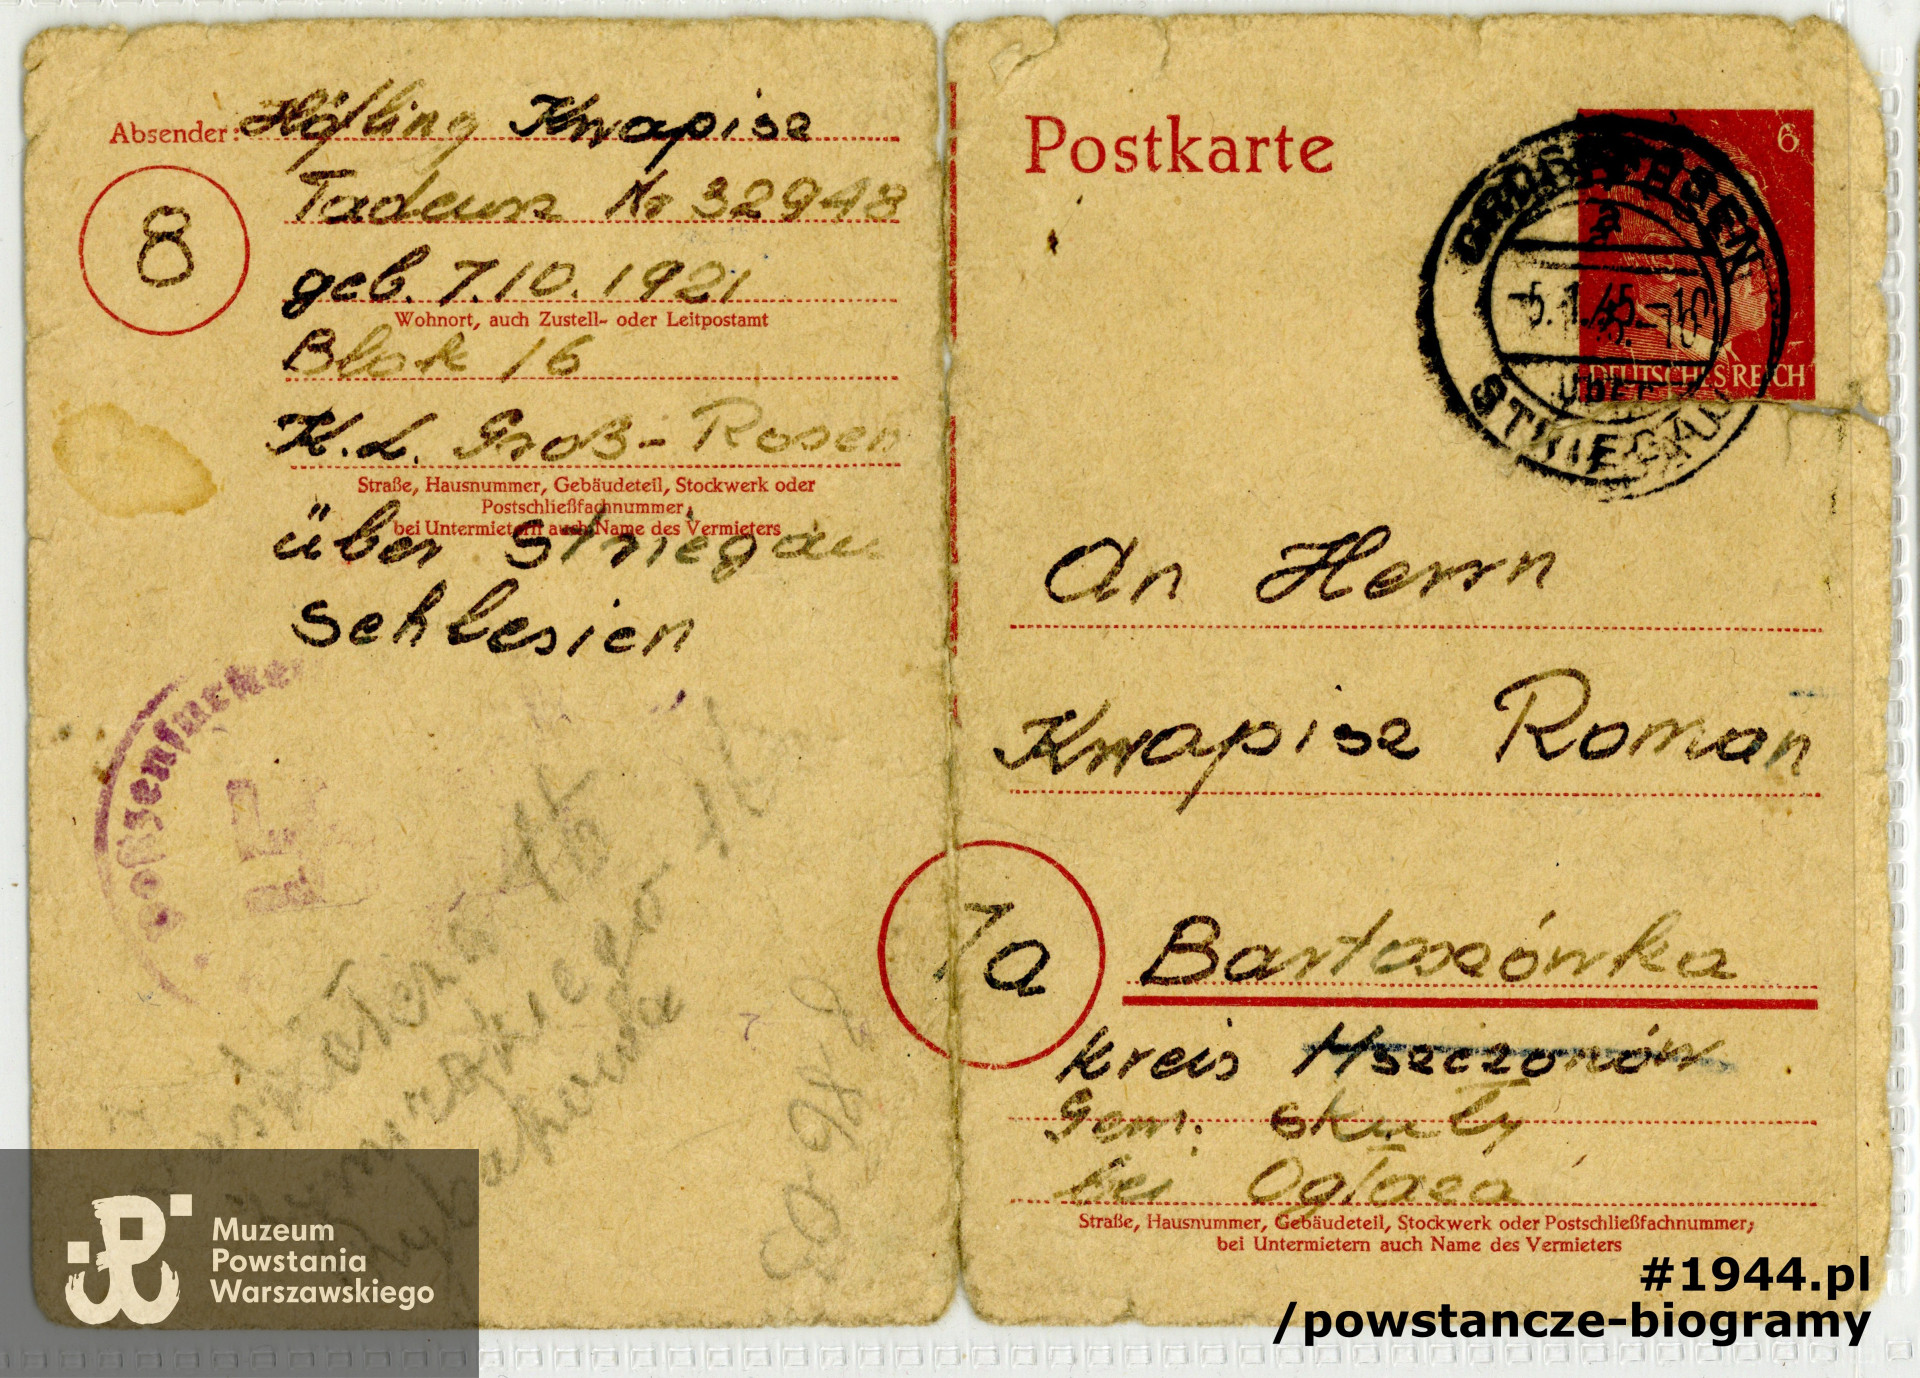 Absender: Häftling Kwapisz
Tadeusz Nr 32948
8
geb. 7.10.1921
Wohnort, auch Zustell- oder Leitpostamt
Blok 16
K.L. Groß-Rosen
Straße, Hausnummer, Gebäudeteil, Stockwerk oder
Postschließfachnummer;
bei Untermietern auch Name des Vermieters
über Striegau
Schlesien
Postkarte
6
DEUTSCHES REICH
GROSS-ROSEN
a
-5.1.45.-10
über
STRIEGAU
An Herrn
Kwapisz Roman
7a
Bartoszówka
Kreis Mszczonów
Gem. Skuły
bei Ogłaza
Straße, Hausnummer, Gebäudeteil, Stockwerk oder Postschließfachnummer;
bei Untermietern auch Name des Vermieters
Muzeum
Powstania
Warszawskiego
#1944.pl
/powstancze-biogramy